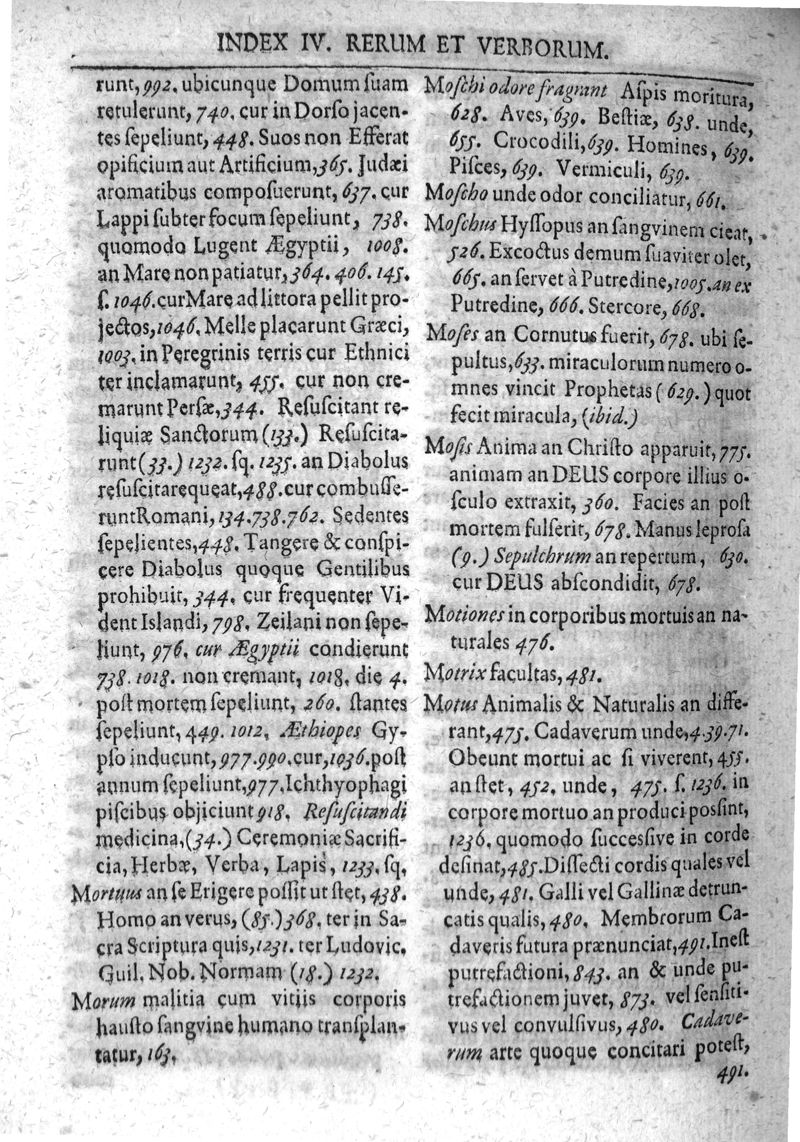 INDEX IV. RERUM ET VERBORUM.
runt,992. ubicunque Domum ſuam
retulerunt, 740. cur in Dorſo jacen-
tes ſepeliunt, 448. Suos non Efferat
opificium aut Artificium,365. Judæi
aromatibus compoſuerunt, 637. cur
Lappi ſubter focum ſepeliunt, 738.
quomodo Lugent Ægyptii, 1008.
an Mare non patiatur,364. 406. 145.
ſ. 1046.cur Mare ad littora pellit pro-
jectos,1046. Melle placarunt Græci,
1003. in Peregrinis terris cur Ethnici
ter inclamarunt, 455. cur non cre-
marunt Perſæ,344. Reſuſcitant re-
liquiæ Sanctorum (133.) Reſuſcita-
runt (33.) 1232. ſq. 1235. an Diabolus
reſuſcitare queat,488.cur combuſſe-
runt Romani, 134.738.762. Sedentes
ſepelientes,448. Tangere & conſpi-
cere Diabolus quoque Gentilibus
prohibuit, 344. cur frequenter Vi-
dent Islandi, 798. Zeilani non ſepe-
liunt, 976. cur Ægyptii condierunt
738. 1018. non cremant, 1018. die 4.
poſt mortem ſepeliunt, 260. ſtantes
ſepeliunt, 449. 1012. Æthiopes Gy-
pſo inducunt, 977.990.cur,1036.poſt
annum ſepeliunt,977.Ichthyophagi
piſcibus objiciunt 918. Reſuſcitandi
medicina,(34.) Ceremoniæ Sacrifi-
cia, Herbæ, Verba, Lapis, 1233. ſq.
Mortuus an ſe Erigere poſſit ut ſtet, 438.
Homo an verus, (85.) 368. ter in Sa-
cra Scriptura quis,1231. ter Ludovic.
Guil. Nob. Normam (18.) 1232.
Morum malitia cum vitiis corporis
hauſto ſangvine humano transplan-
tatur, 163.
Moſchi odore fragrant Aſpis moritura,
628. Aves, 639. Beſtiæ, 638. unde,
655. Crocodili,639. Homines, 639.
Piſces, 639. Vermiculi, 639.
Moſcho unde odor conciliatur, 661.
Moſchus Hyſſopus an ſangvinem cieat,
526. Excoctus demum ſuaviter olet,
665. an ſervet à Putredine,1005.an ex
Putredine, 666. Stercore, 668.
Moſes an Cornutus fuerit, 678. ubi ſe-
pultus,633. miraculorum numero o-
mnes vincit Prophetas (629.) quot
fecit miracula, (ibid.)
Moſis Anima an Chriſto apparuit, 775.
animam an DEUS corpore illius o-
ſculo extraxit, 360. Facies an poſt
mortem fulſerit, 678. Manus leproſa
(9.) Sepulchrum an repertum, 630.
cur DEUS abſcondidit, 678.
Motiones in corporibus mortuis an na-
turales 476.
Motrix facultas, 481.
Motus Animalis & Naturalis an diffe-
rant,475. Cadaverum unde,439.71.
Obeunt mortui ac ſi viverent, 455.
an ſtet, 452. unde, 475. ſ. 1236. in
corpore mortuo an produci poſſint,
1236. quomodo ſucceſſive in corde
deſinat,485.Diſſecti cordis quales vel
unde, 481. Galli vel Gallinæ detrun-
catis qualis, 480. Membrorum Ca-
daveris futura prænunciat,491.Ineſt
putrefactioni, 843. an & unde pu-
trefactionem juvet, 873. vel ſenſiti-
vus vel convulſivus, 480. Cadave-
rum arte quoque concitari poteſt,
491.